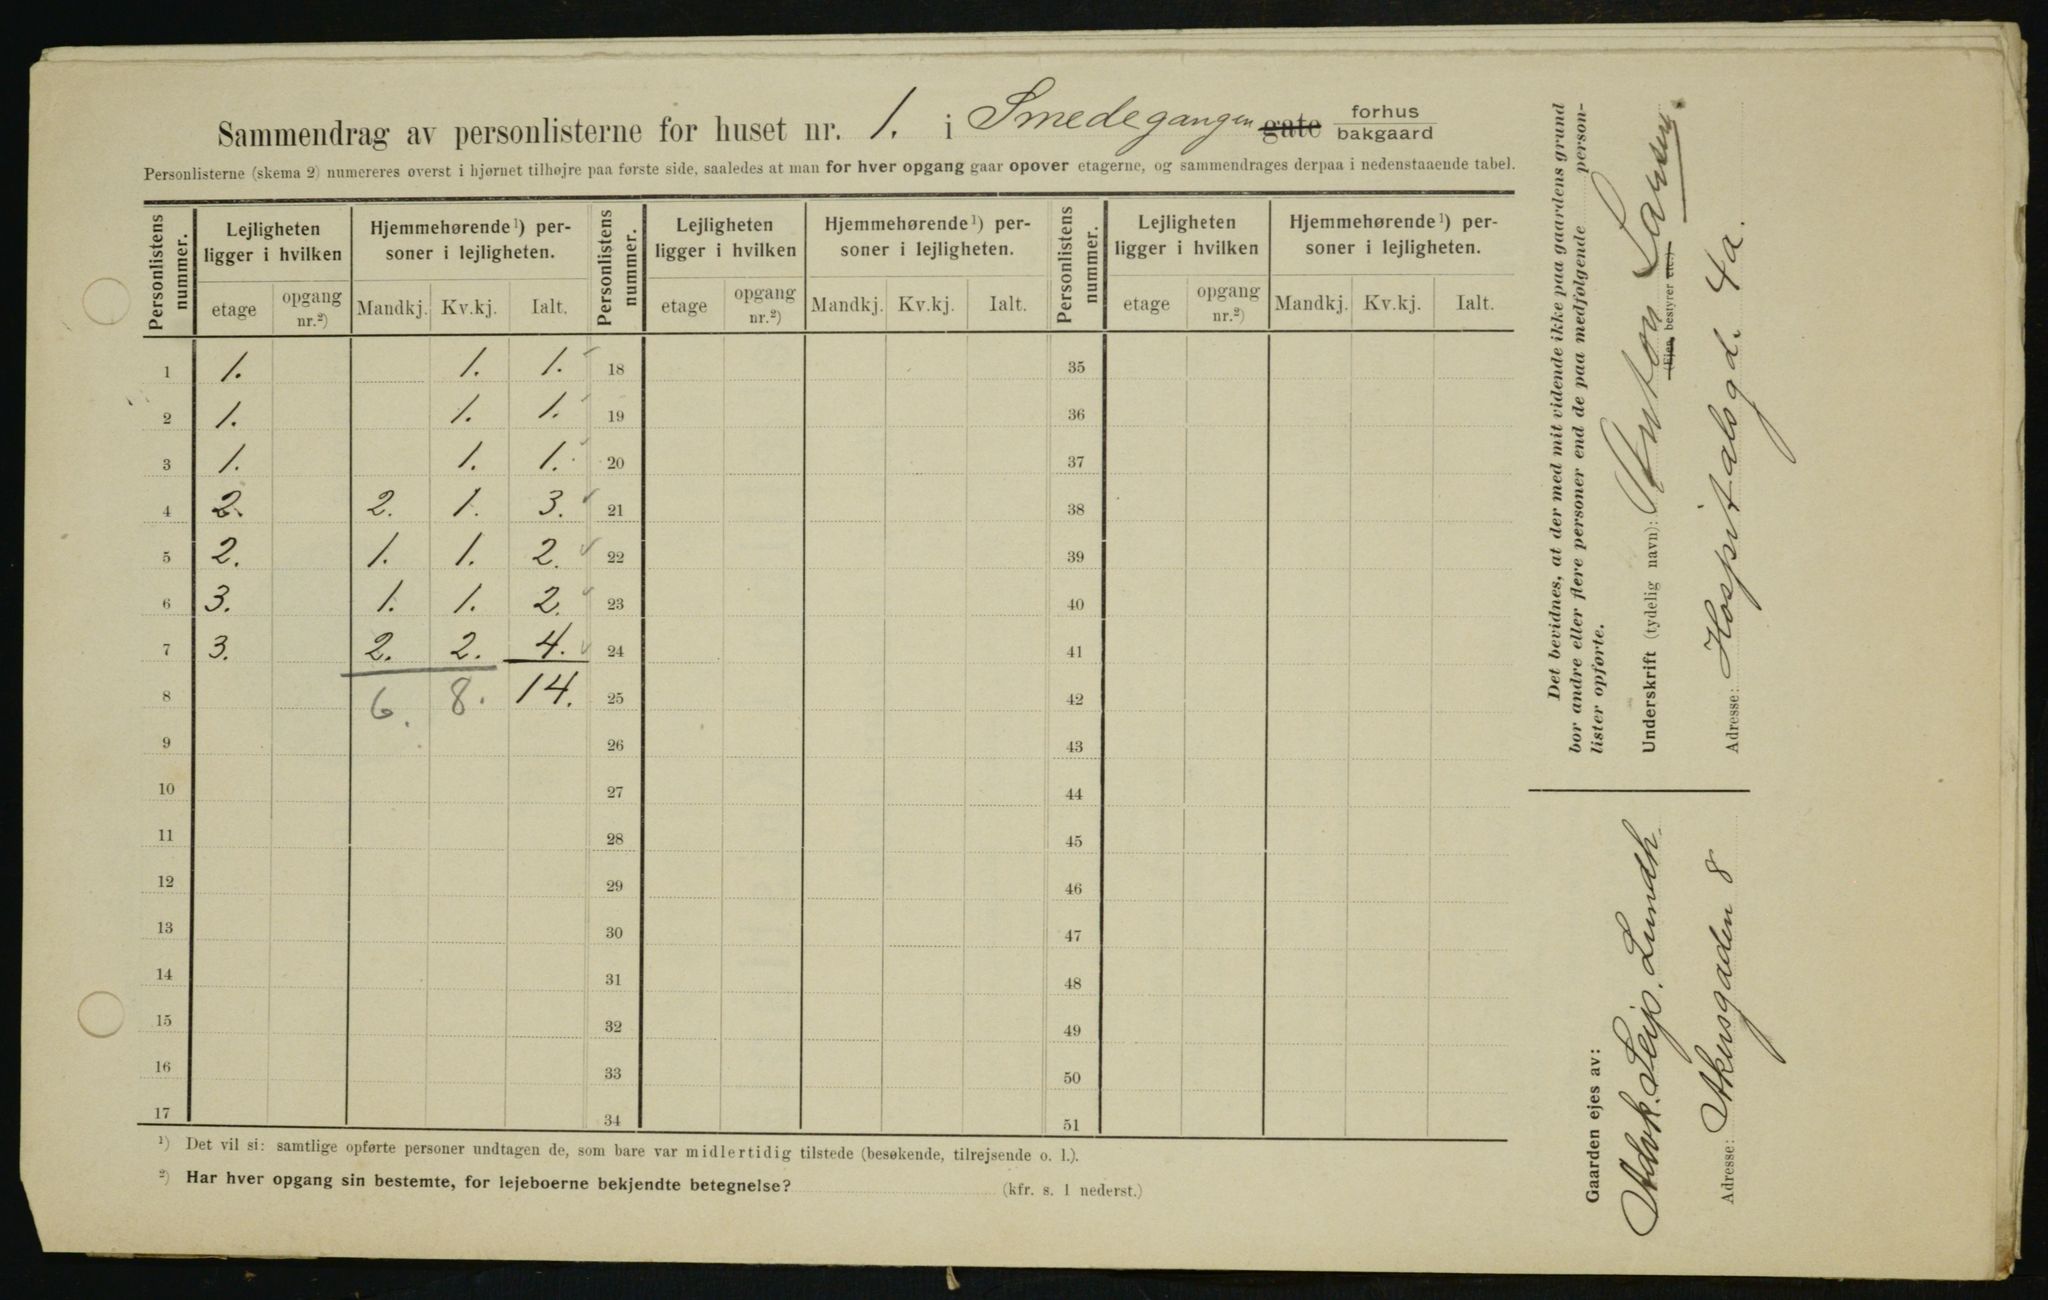 Sammendrag av personlisterne for huset nr. 1. i Smedegangen gate forhus bakgaard
Personlisterne (skema 2) numereres øverst i hjørnet tilhøjre paa første side, saaledes at man for hver opgang gaar opover etagerne, og sammendrages derpaa i nedenstaaende tabel.
Personlistens nummer. Lejligheten ligger i hvilken Hjemmehørende ¹) personer i lejligheten. Personlistens nummer. Lejligheten ligger i hvilken Hjemmehørende ¹) personer i lejligheten. Personlistens nummer. Lejligheten ligger i hvilken Hjemmehørende ¹) personer i lejligheten.
etage opgang nr.²) Mandkj. Kv.kj. Ialt. etage opgang nr.²) Mandkj. Kv.kj. Ialt. etage opgang nr.²) Mandkj. Kv.kj. Ialt.
1 1. 1. 1. 18 35
2 1. 1. 1. 19 36
3 1. 1. 1. 20 37
4 2. 2. 1. 3. 21 38
5 2. 1. 1. 2. 22 39
6 3. 1. 1. 2. 23 40
7 3. 2. 2. 4. 24 41
8 6. 8. 14. 25 42
9 26 43
10 27 44
11 28 45
12 29 46
13 30 47
14 31 48
15 32 49
16 33 50
17 34 51
¹) Det vil si: samtlige opførte personer undtagen de, som bare var midlertidig tilstede (besøkende, tilrejsende o. l.).
²) Har hver opgang sin bestemte, for lejeboerne bekjendte betegnelse? (kfr. s. 1 nederst.)
Det bevidnes, at der med mit vidende ikke paa gaardens grund
bor andre eller flere personer end de paa medfølgende person-
lister opførte.
Underskrift (tydelig navn): Anton Larsen.
(Ejer, bestyrer etc.)
Adresse: Hospitalsgd. 4a.
Gaarden ejes av:
Advk. Lejp. Lundh.
Adresse: Akersgaden 8